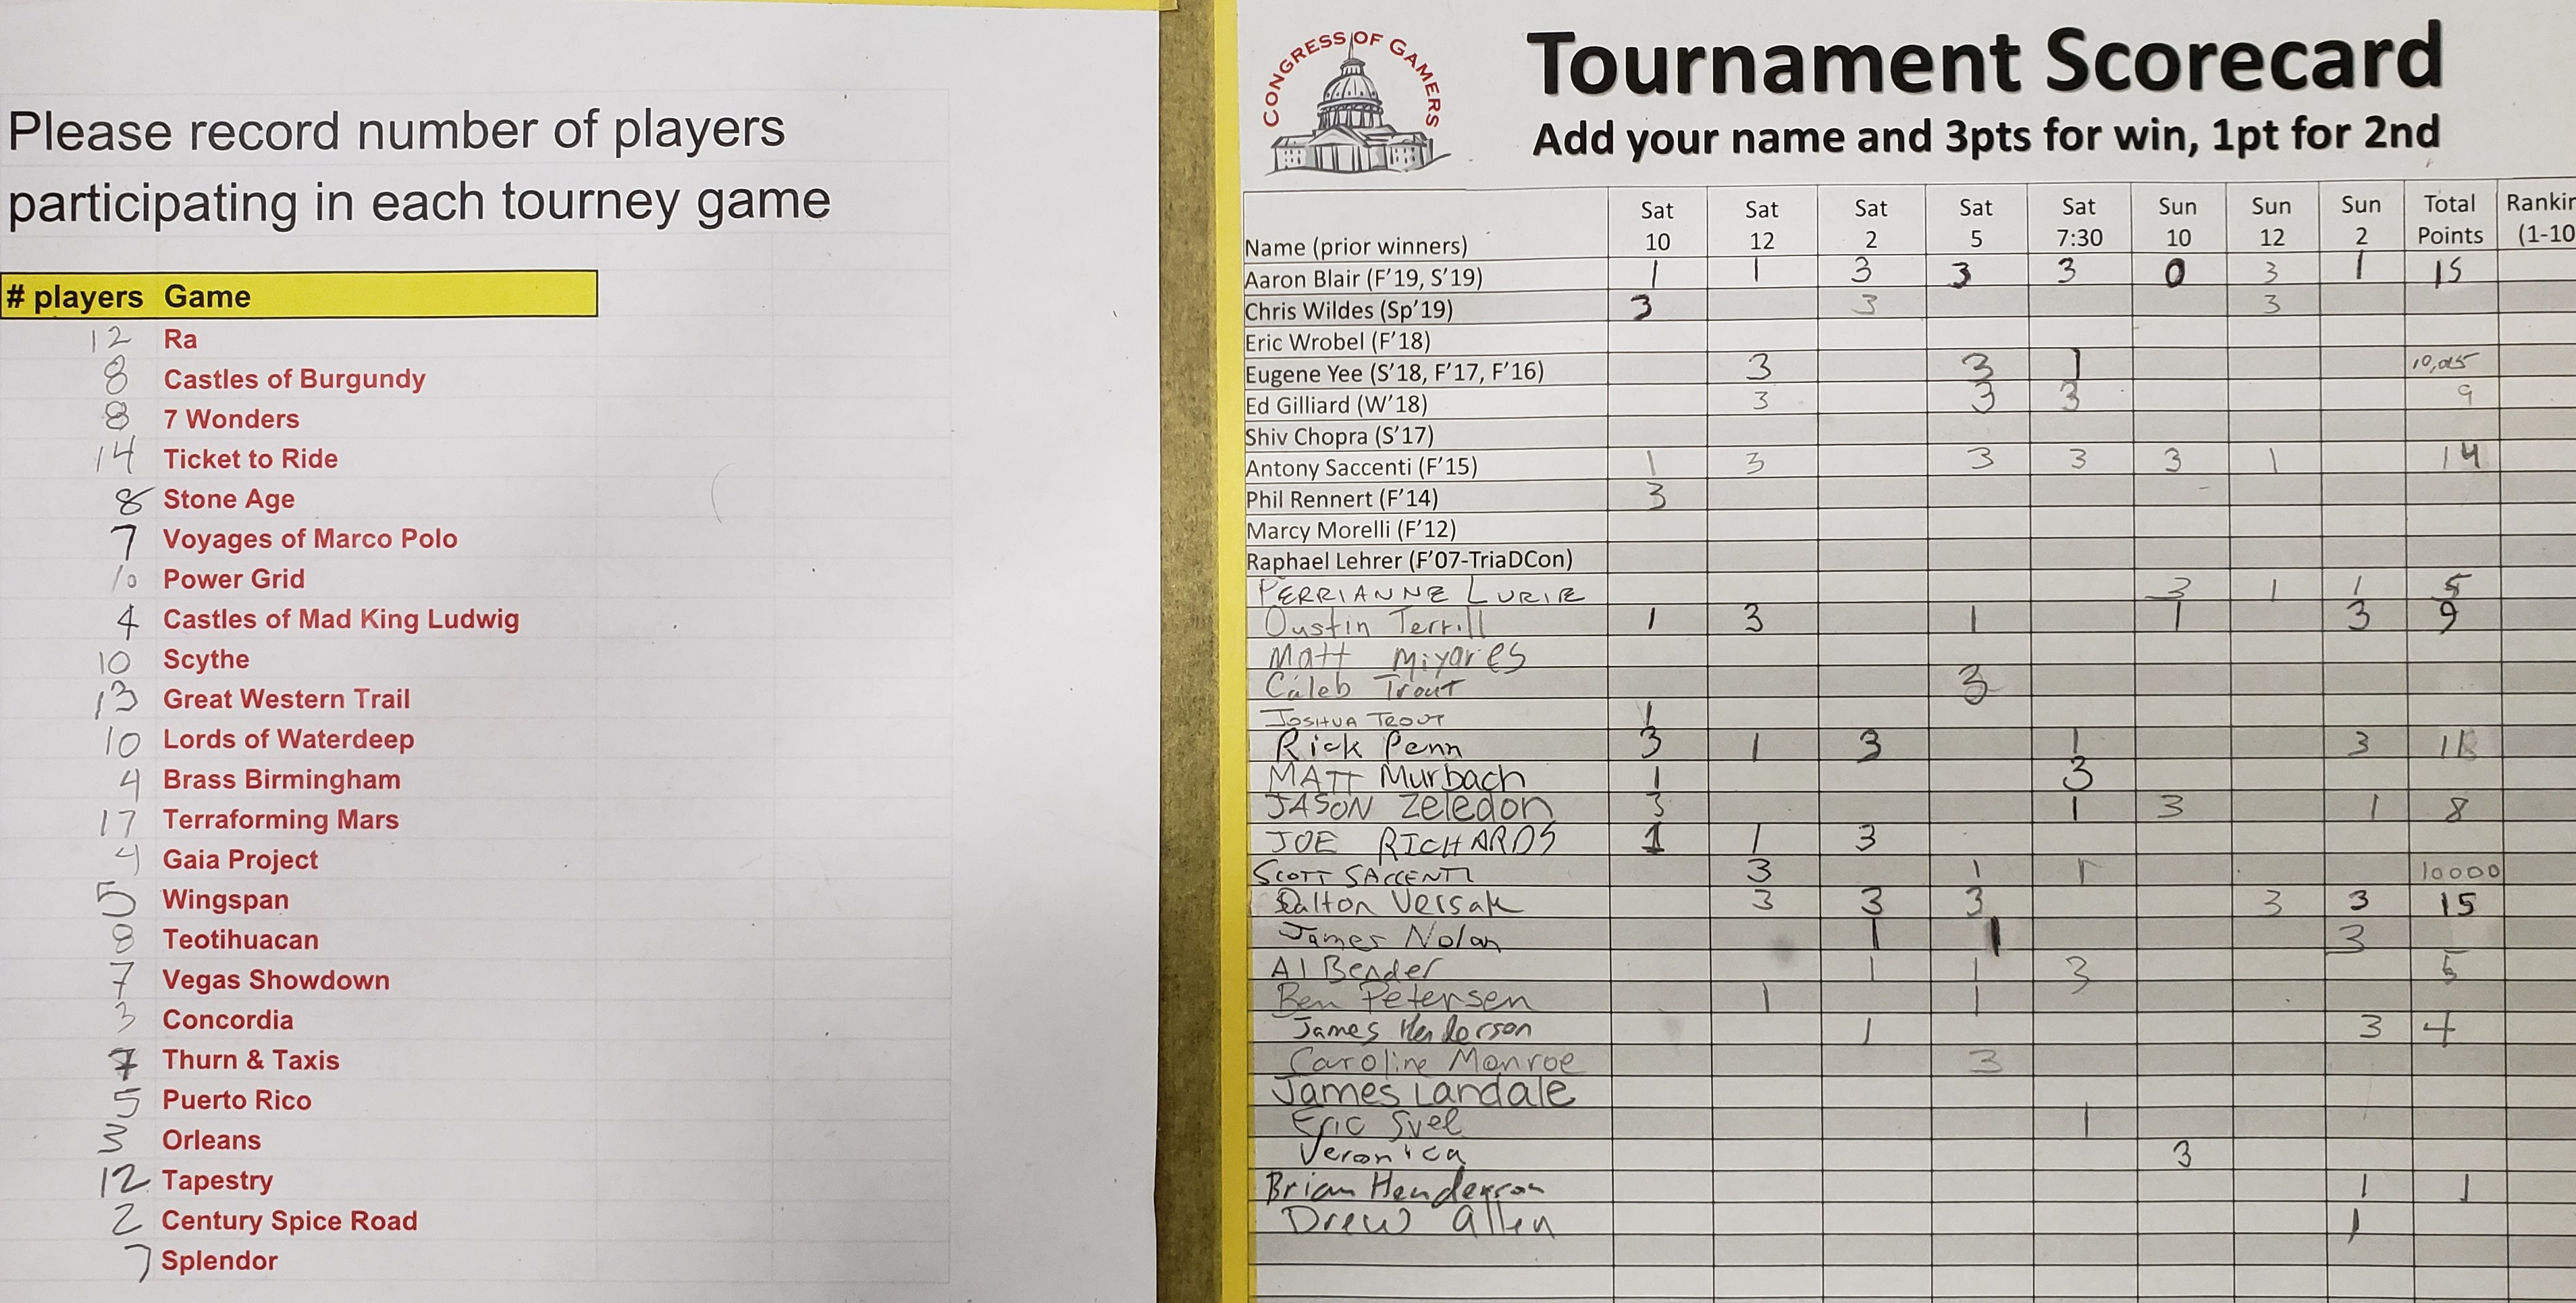 Please record number of players
participating in each tourney game
# players Game
12 Ra
8 Castles of Burgundy
8 7 Wonders
14 Ticket to Ride
8 Stone Age
7 Voyages of Marco Polo
10 Power Grid
4 Castles of Mad King Ludwig
10 Scythe
13 Great Western Trail
10 Lords of Waterdeep
4 Brass Birmingham
17 Terraforming Mars
4 Gaia Project
5 Wingspan
8 Teotihuacan
7 Vegas Showdown
3 Concordia
7 Thurn & Taxis
5 Puerto Rico
3 Orleans
12 Tapestry
2 Century Spice Road
7 Splendor
CONGRESS OF GAMERS
Tournament Scorecard
Add your name and 3pts for win, 1pt for 2nd
Name (prior winners) Sat 10 Sat 12 Sat 2 Sat 5 Sat 7:30 Sun 10 Sun 12 Sun 2 Total Points Rankin (1-10
Aaron Blair (F'19, S'19) 1 1 3 3 3 0 3 1 15
Chris Wildes (Sp'19) 3 3 3
Eric Wrobel (F'18)
Eugene Yee (S'18, F'17, F'16) 3 3 1
Ed Gilliard (W'18) 3 3 3 9
Shiv Chopra (S'17)
Antony Saccenti (F'15) 1 3 3 3 3 1 14
Phil Rennert (F'14) 3 -
Marcy Morelli (F'12)
Raphael Lehrer (F'07-TriaDCon)
PERRIANNE LURIE 3 1 1 5
Dustin Terrill 1 3 1 1 3 9
Matt Miyares
Caleb Trout 3
JOSHUA TROUT 1
Rick Penn 3 1 3 1 3
MATT Murbach 1 3
JASON Zeledon 3 1 3 1 8
JOE RICHARDS 1 1 3
SCOTT SACCENTI 3 1 1 10000
Dalton Versak 3 3 3 3 3 15
James Nolan 1 1 3
Al Bender 1 1 3 5
Ben Petersen 1 1
James Henderson 1 3 4
Caroline Monroe 3
James Landale
Eric Svel 1
Veronica 3
Brian Henderson 1 1
Drew Allen 1